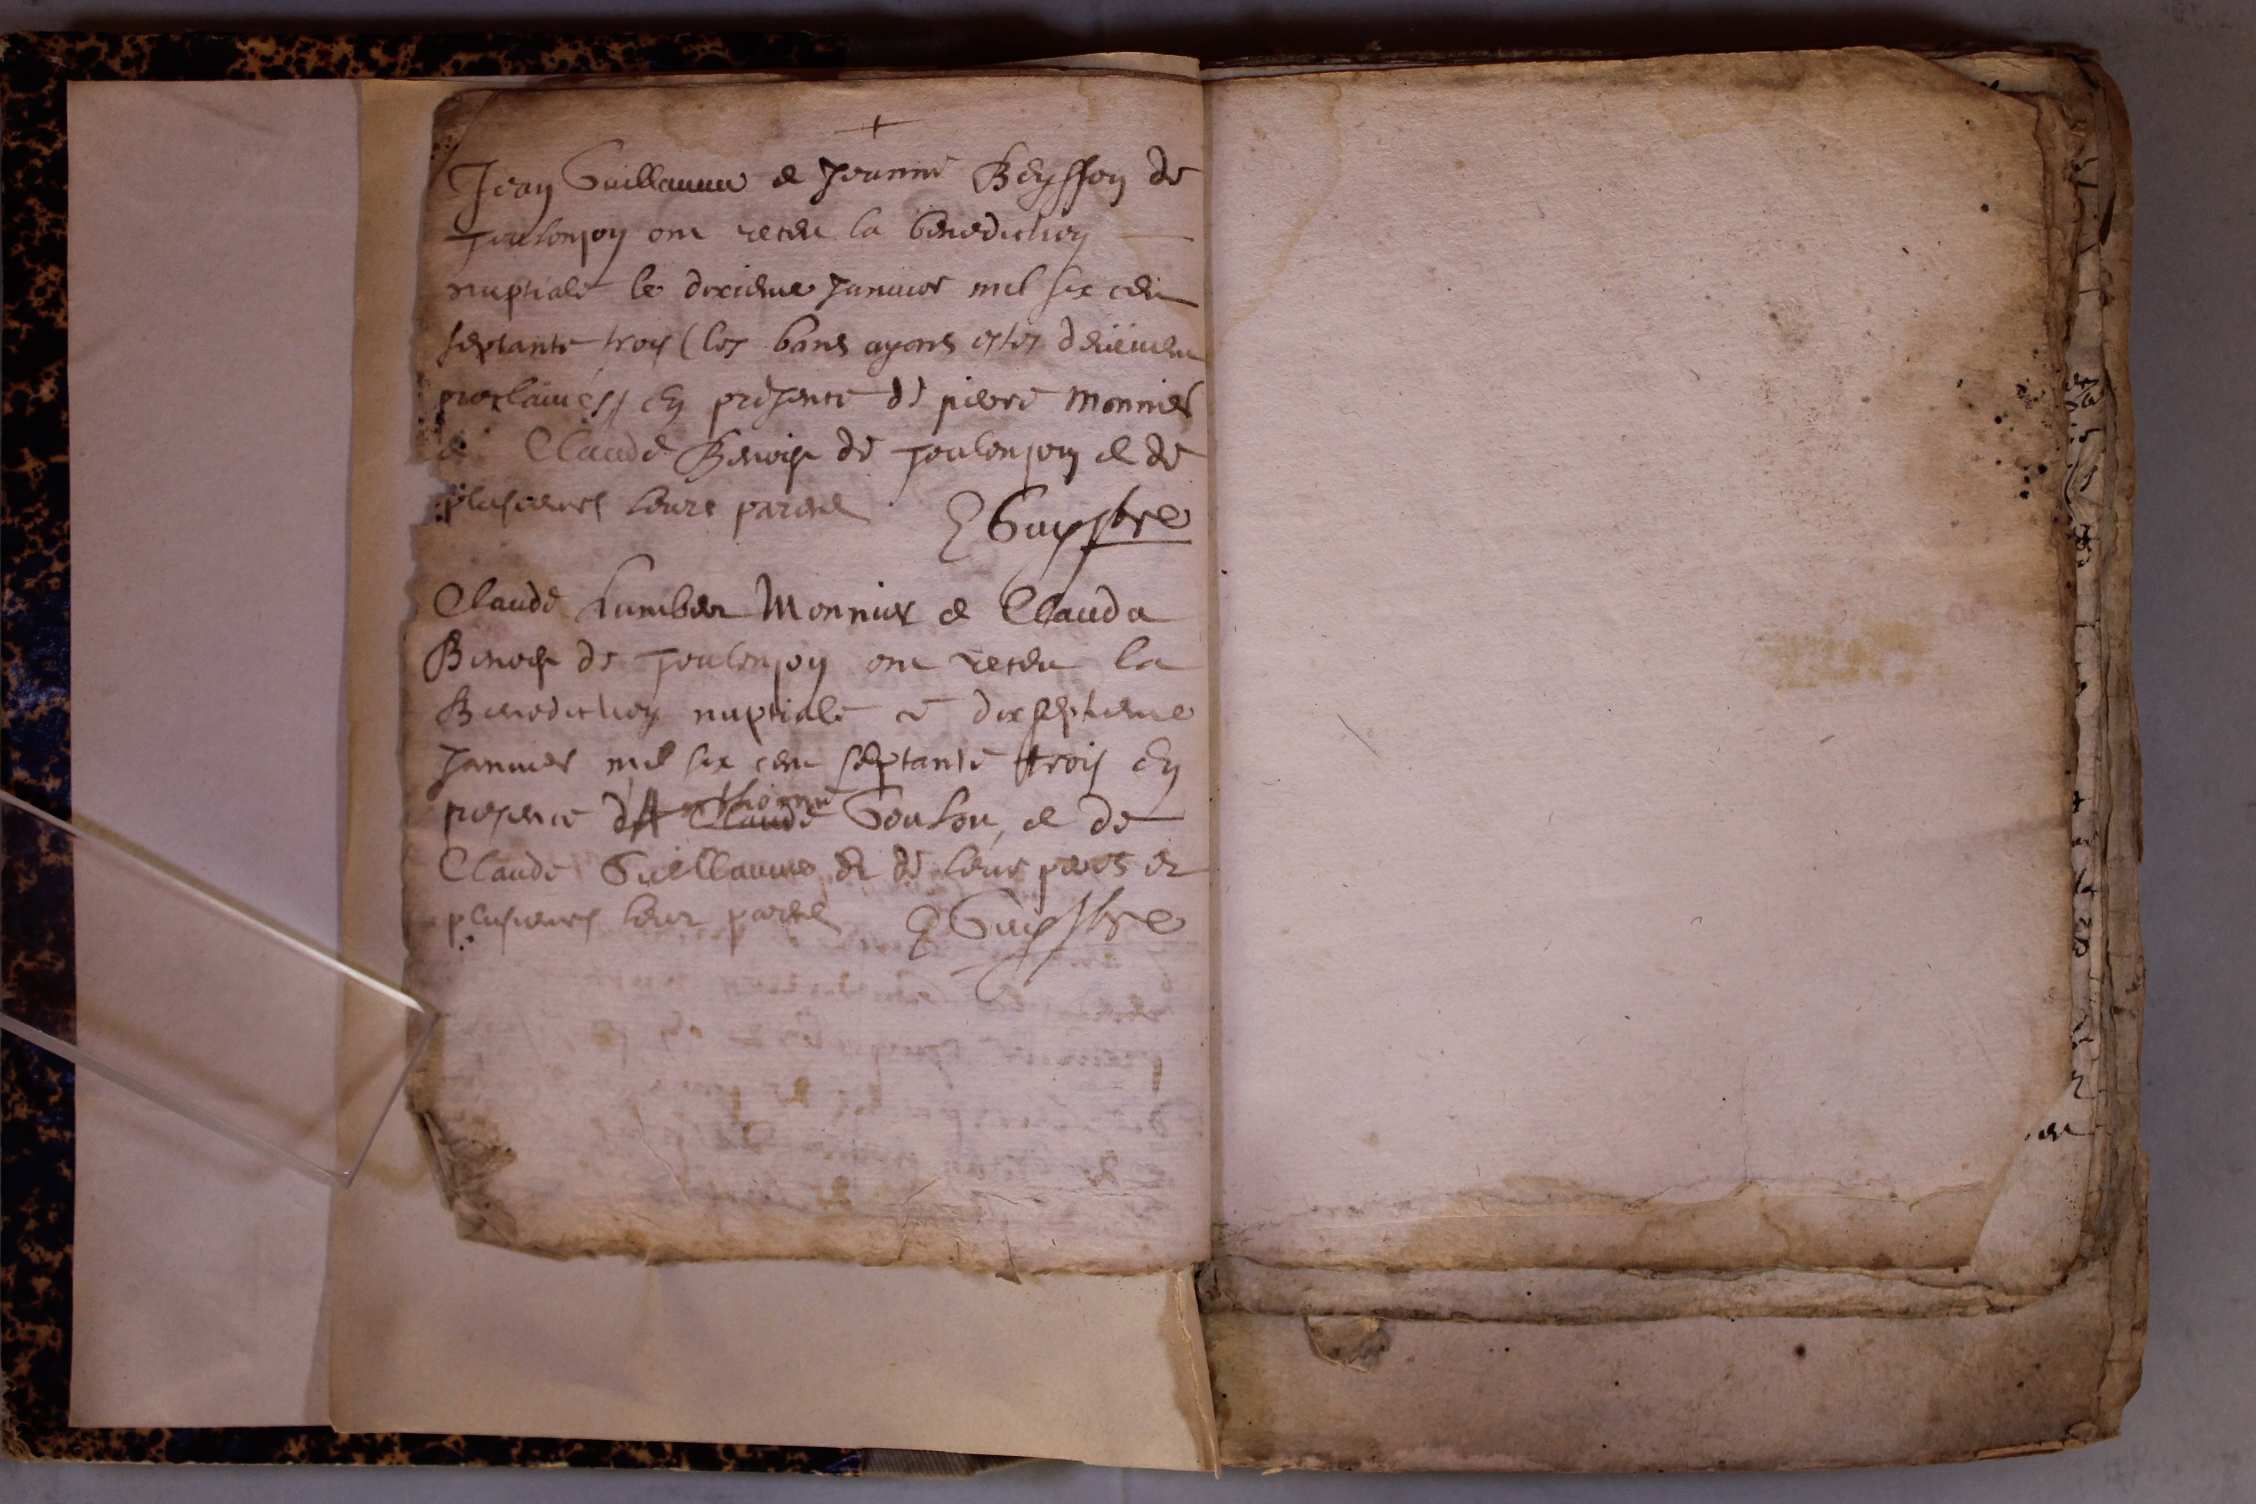 +
Jean Guillaume et Jeanne Beysson de
Toulonjon ont receu la benediction
nuptiale le dixieme Januier mil six cent
septante trois (les bans ayans estes deüement
proclaimés) En presence de pierre Monnier
et Claude Benoist de Toulonjon et de
plusieurs leurs parents
Claude Humbert Monnier et Clauda
Benoist de Toulonjon ont receu la
Benediction nuptiale ce dixseptieme
Januier mil six cent septante trois En
presence d'Anthoine Claude Goulou, et de
Claude Guillaume et de leur peres et
plusieurs leur parents